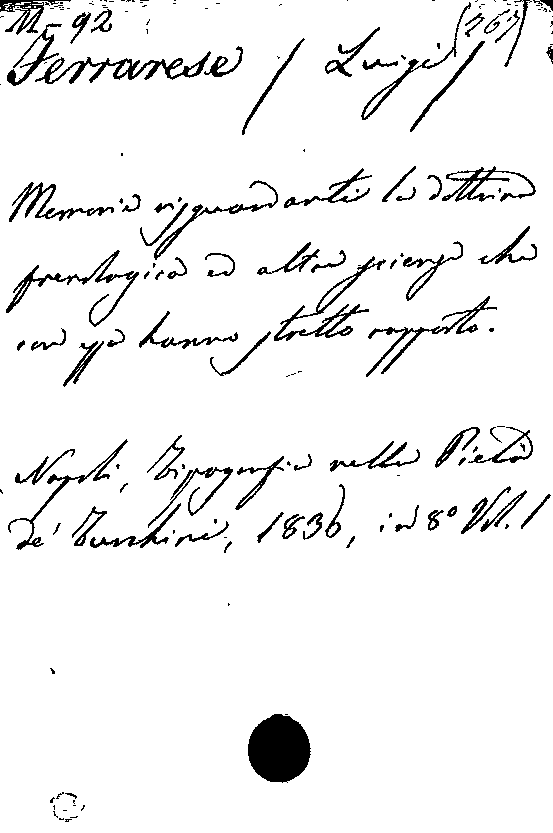 M-92 (267)
Ferrarese / Luigi /
Memorie risguardanti la dottrina
frenologica ed altre scienze che
con essa hanno stretto rapporto.
Napoli, Tipografia nella Pietà
de' Turchini, 1836, in 8º Vol. 1